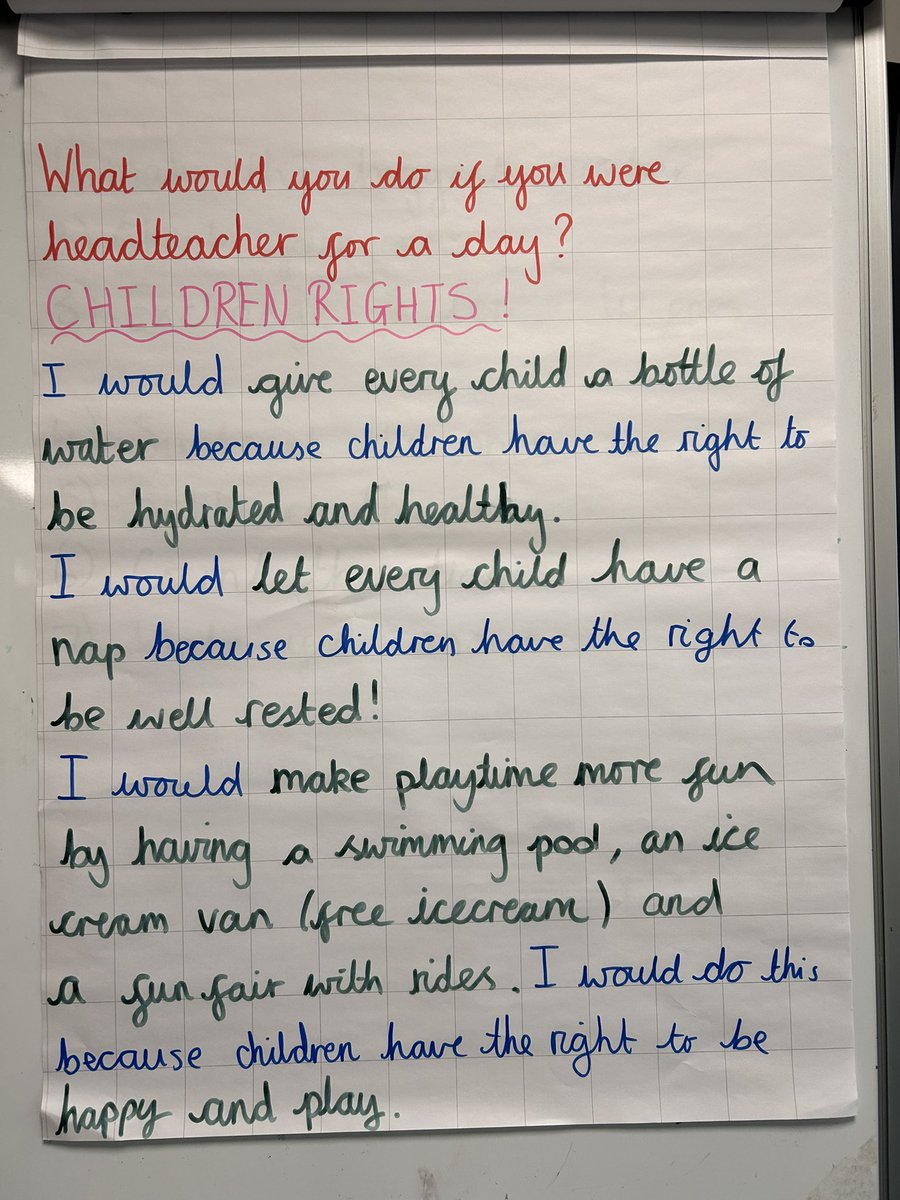 What would you do if you were
headteacher for a day?
CHILDREN RIGHTS!
I would give every child a bottle of
water because children have the right to
be hydrated and healthy.
I would let every child have a
nap because children have the right to
be well rested!
I would make playtime more fun
by having a swimming pool, an ice
cream van (free icecream) and
a fun fair with rides. I would do this
because children have the right to be
happy and play.